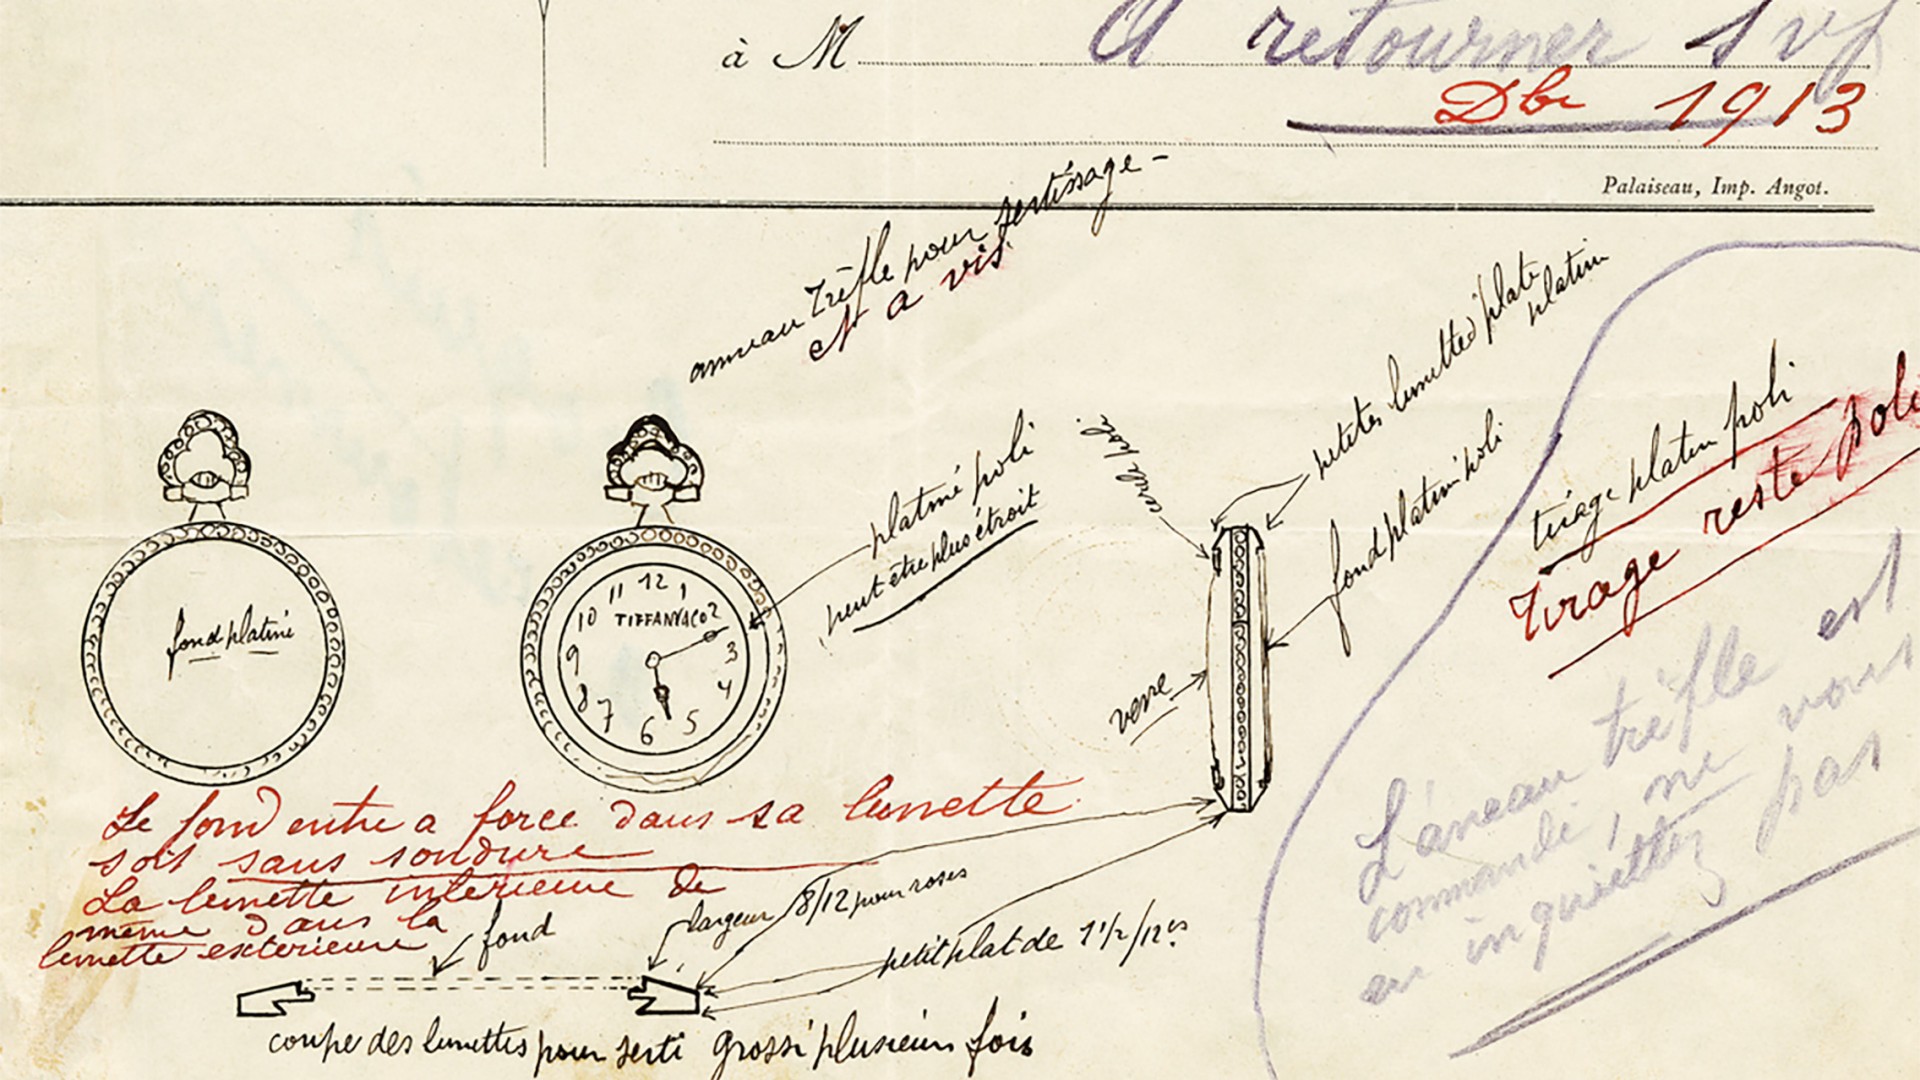 à M
A retourner Svp
Dbr 1913
Palaiseau, Imp. Angot.
anneau trèfle pour sertissage -
et a vis
petites lunettes plate
platine
platiné poli
peut être plus étroit
fond platine poli
tirage platine poli
Tirage reste poli
fond platiné
10 11 12 1
TIFFANY & CO 2
9 3
8 4
7 6 5
verre
L'aneau trèfle est
commandé, ne vous
en inquiéttez pas
Le fond entre a force dans sa lunette
soit sans soudure
La lunette interieure de
même dans la
lunette exterieure
fond
largeur 8/12 pour roses
petit plat de 1 1/2/12es
coupe des lunettes pour serti grossi plusieurs fois